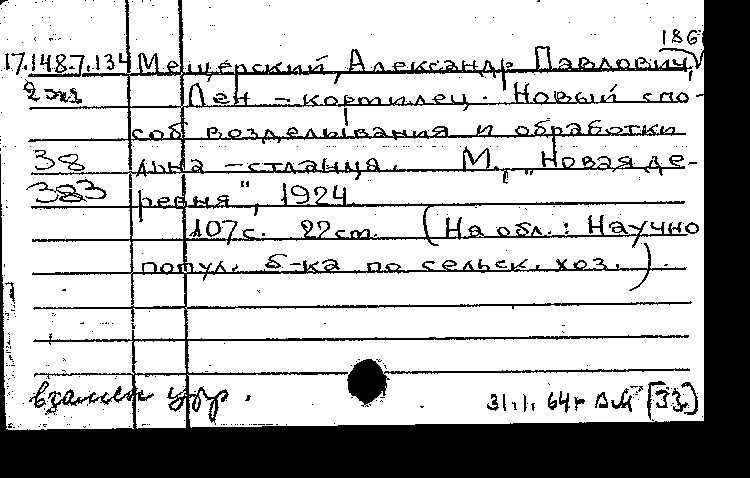 186
17.148.7.134 Мещерский, Александр Павлович,
2 экз Лен – кормилец. Новый спо-
соб возделывания и обработки
38 льна – стланца. М., „Новая де-
383 ревня", 1924.
107 с. 22 см. (На обл.: Научно
попул. б-ка по сельск. хоз.).
взамен утр.
31.1.64 г АМ [33]